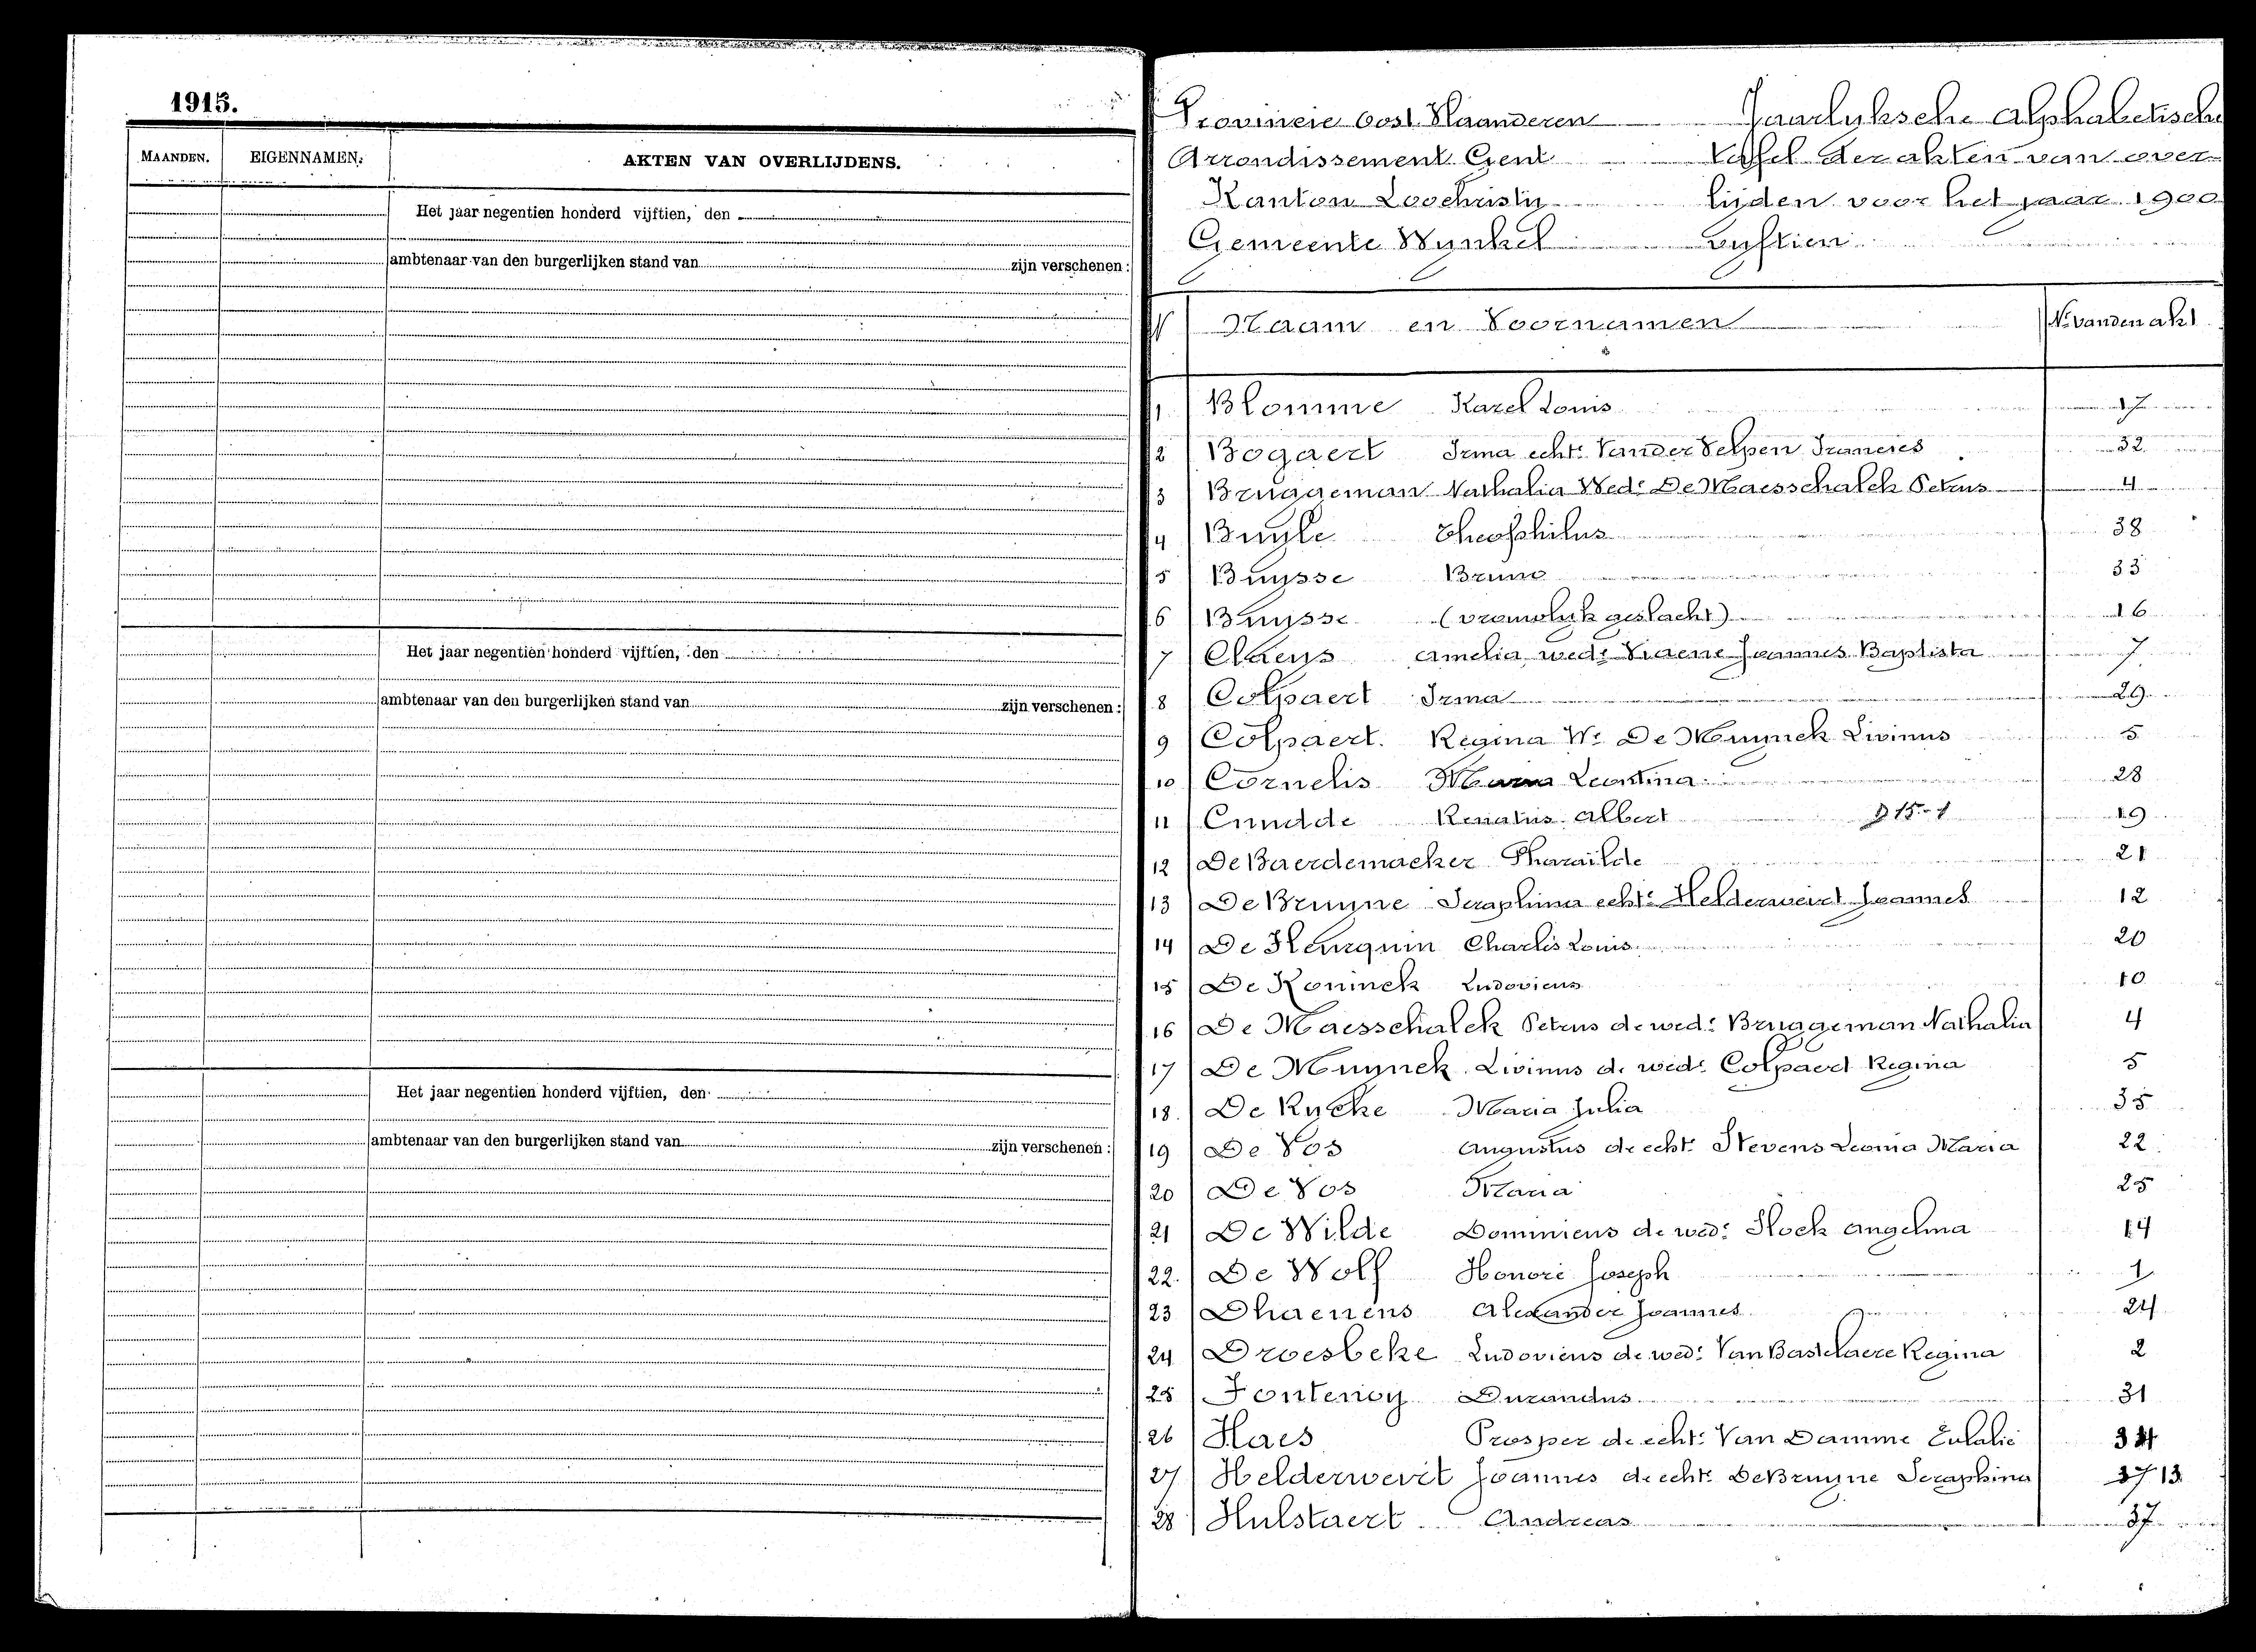 1915.
MAANDEN. EIGENNAMEN. AKTEN VAN OVERLIJDENS.
Het jaar negentien honderd vijftien, den
ambtenaar van den burgerlijken stand van zijn verschenen:
Het jaar negentien honderd vijftien, den
ambtenaar van den burgerlijken stand van zijn verschenen:
Het jaar negentien honderd vijftien, den
ambtenaar van den burgerlijken stand van zijn verschenen:
Provincie Oost Vlaanderen Jaarlyksche Alphabetische
Arrondissement Gent Tafel der akten van over-
Kanton Loochristy lijden voor het jaar 1900
Gemeente Wynkel vyftien
N Naam en Voornamen No van den akt
1 Blomme Karel Louis 17
2 Bogaert Irma echte Vander Velpen Francies 32
3 Bruggeman Nathalia Wede De Maesschalck Petrus 4
4 Buyle Theophilus 38
5 Buysse Bruno 33
6 Buysse (vrouwlyk geslacht) 16
7 Claeys Amelia wede Viaene Joannes Baptista 7
8 Colpaert Irma 29
9 Colpaert Regina We De Muynck Livinus 5
10 Cornelis Maria Leontina 28
11 Cnudde Renatus Albert 19
12 De Baerdemacker Pharaïlde 21
13 De Bruyne Seraphina echte Helderweirt Joannes 12
14 De Henquin Charles Louis 20
15 De Koninck Ludovicus 10
16 De Maesschalck Petrus de wede Bruggeman Nathalia 4
17 De Muynck Livinus de wede Colpaert Regina 5
18 De Rycke Maria Julia 35
19 De Vos Augustus de echte Stevens Leonia Maria 22
20 De Vos Maria 25
21 De Wilde Dominicus de wede Hoek Angelina 14
22 De Wolf Honoré Joseph 1
23 Dhaenens Alexander Joannes 24
24 Droesbeke Ludovicus de wede Van Bastelaere Regina 2
25 Fontenoy Durandus 31
26 Haes Prosper de echte Van Damme Eulalie 34
27 Helderweirt Joannes de echte De Bruyne Seraphina 13
28 Hulstaert Andreas 37